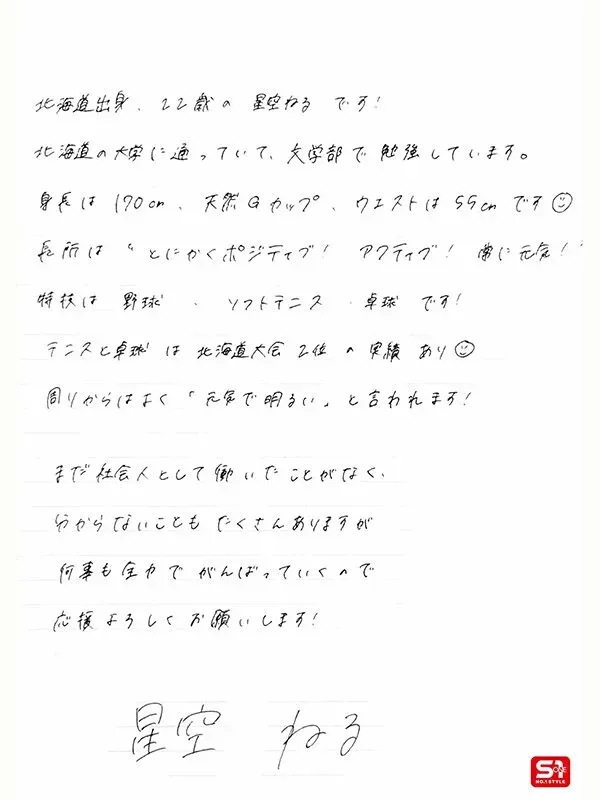 北海道出身、22歳の 星空ねる です!
北海道の大学に通っていて、文学部で勉強しています。
身長は 170cm、天然Gカップ、ウエストは 55cm です☺
長所は "とにかくポジティブ! アクティブ! 常に元気!"
特技は 野球 、 ソフトテニス 、卓球 です!
テニスと卓球 は 北海道大会 2位 の 実績 あり☺
周りからはよく「元気で明るい」と言われます!
まだ社会人として働いたことがなく、
分からないことも たくさんありますが
何事も全力で がんばっていくので
応援よろしくお願いします!
星空 ねる
S1
NO.1 STYLE